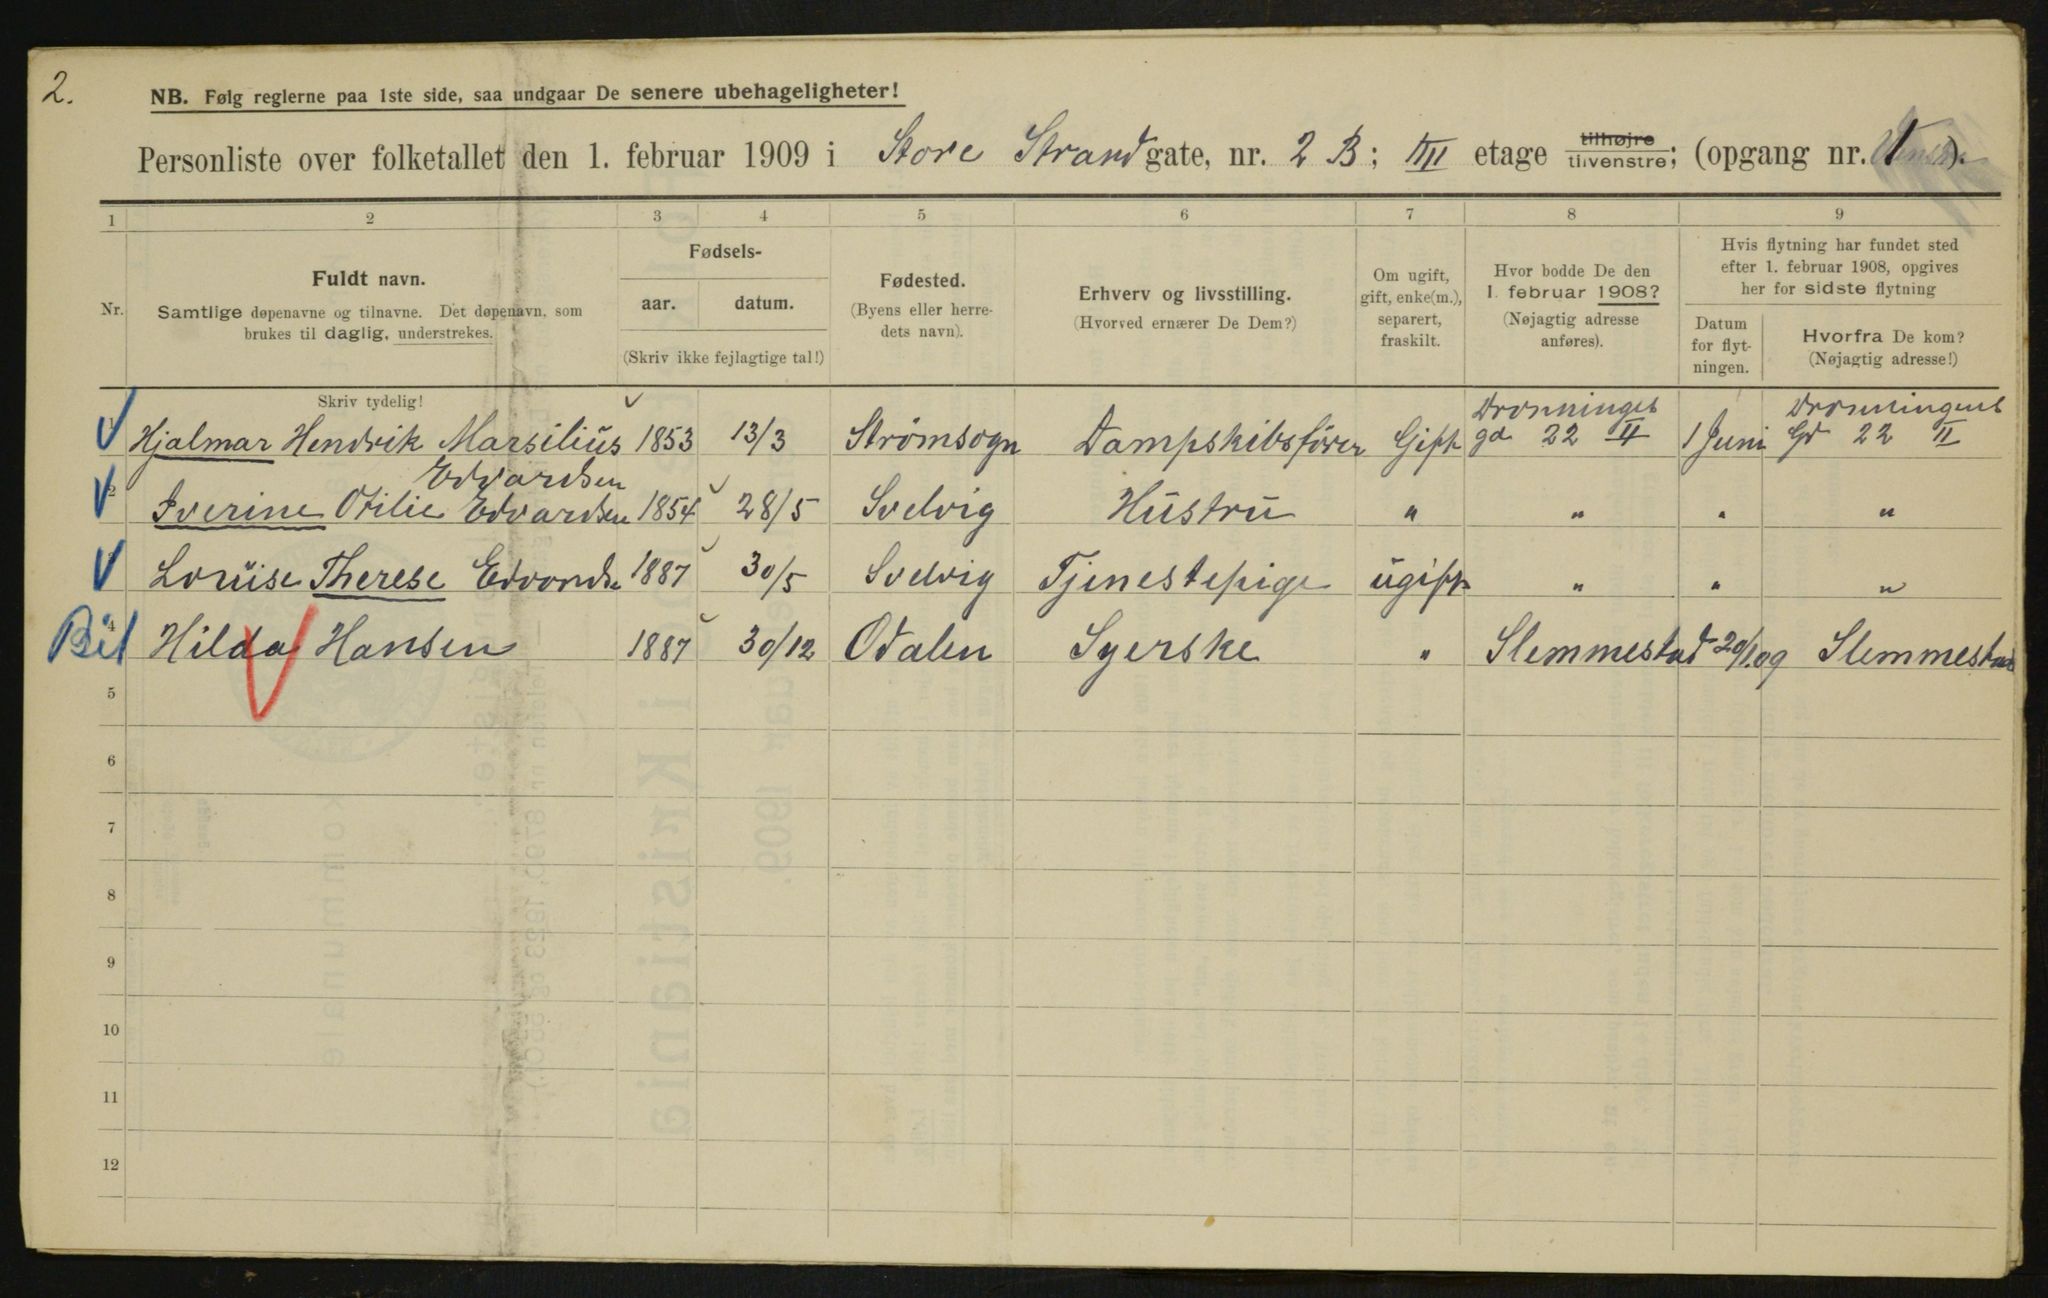 2.
NB. Følg reglerne paa 1ste side, saa undgaar De senere ubehageligheter!
Personliste over folketallet den 1. februar 1909 i Store Strandgate, nr. 2 B; III etage tilhøjre tilvenstre; (opgang nr. 1).
1 2 3 4 5 6 7 8 9
Nr.
Fuldt navn.
Samtlige døpenavne og tilnavne. Det døpenavn, som
brukes til daglig, understrekes.
Fødsels-
aar. datum.
(Skriv ikke fejlagtige tal!)
Fødested.
(Byens eller herre-
dets navn).
Erhverv og livsstilling.
(Hvorved ernærer De Dem?)
Om ugift,
gift, enke(m.),
separert,
fraskilt.
Hvor bodde De den
1. februar 1908?
(Nøjagtig adresse
anføres).
Hvis flytning har fundet sted
efter 1. februar 1908, opgives
her for sidste flytning
Datum
for flyt-
ningen.
Hvorfra De kom?
(Nøjagtig adresse!)
Skriv tydelig!
Hjalmar Hendrik Marsilius Edvardsen 1853 13/3 Strømsogn Dampskibsfører Gift Dronninges gd 22 II 1 Juni Dronningens Gd 22 II
2 Iverine Otilie Edvardsen 1854 28/5 Svelvig Hustru " " " "
Louise Therese Edvardsn 1887 30/5 Svelvig Tjenestepige ugift " " "
Bil 4 Hilda Hansen 1887 30/12 Odalen Syerske " Slemmestad 20/1.09 Slemmestad
5
6
7
8
9
10
11
12